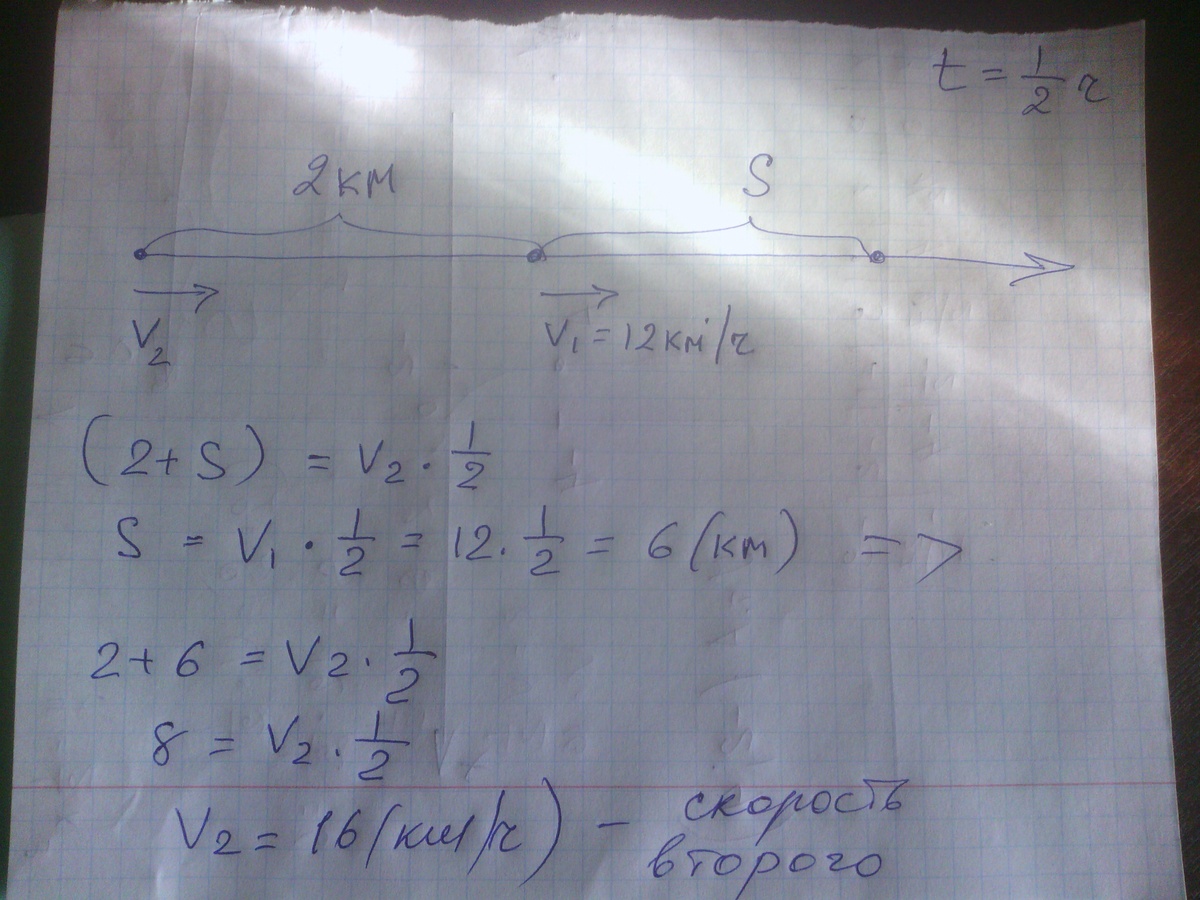 t = 1/2 ч
2 км S
V₂ V₁ = 12 км/ч
(2 + S) = V₂ · 1/2
S = V₁ · 1/2 = 12 · 1/2 = 6 (км) =>
2 + 6 = V₂ · 1/2
8 = V₂ · 1/2
V₂ = 16 (км/ч) – скорость
второго